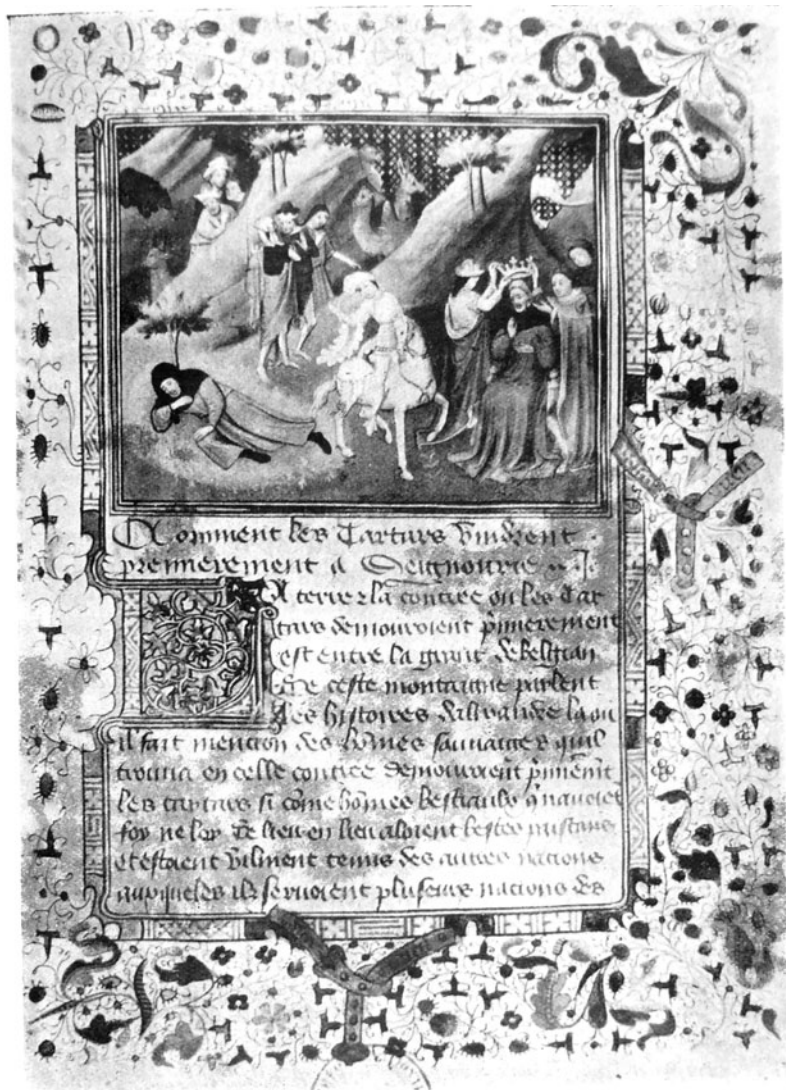 Comment les Tartars vindrent
premierement a Seignourie
La terre et la contree ou les Tar
tars demouroient p̃mierement
est entre la grant de Belgian
De ceste montaigne parlent
les histoires dalixandre la ou
il fait mencion des hõmes sauuaiges quil
trouua en celle contree demouroient p̃mieremẽt
les tartars si cõme hõmes bestiaulx q̃ nauoiẽt
foy ne loy De lieu en lieu aloient bestes
et estoient vilment tenus des autres nacions
auxqueles ilz seruoient pluseurs nacions des